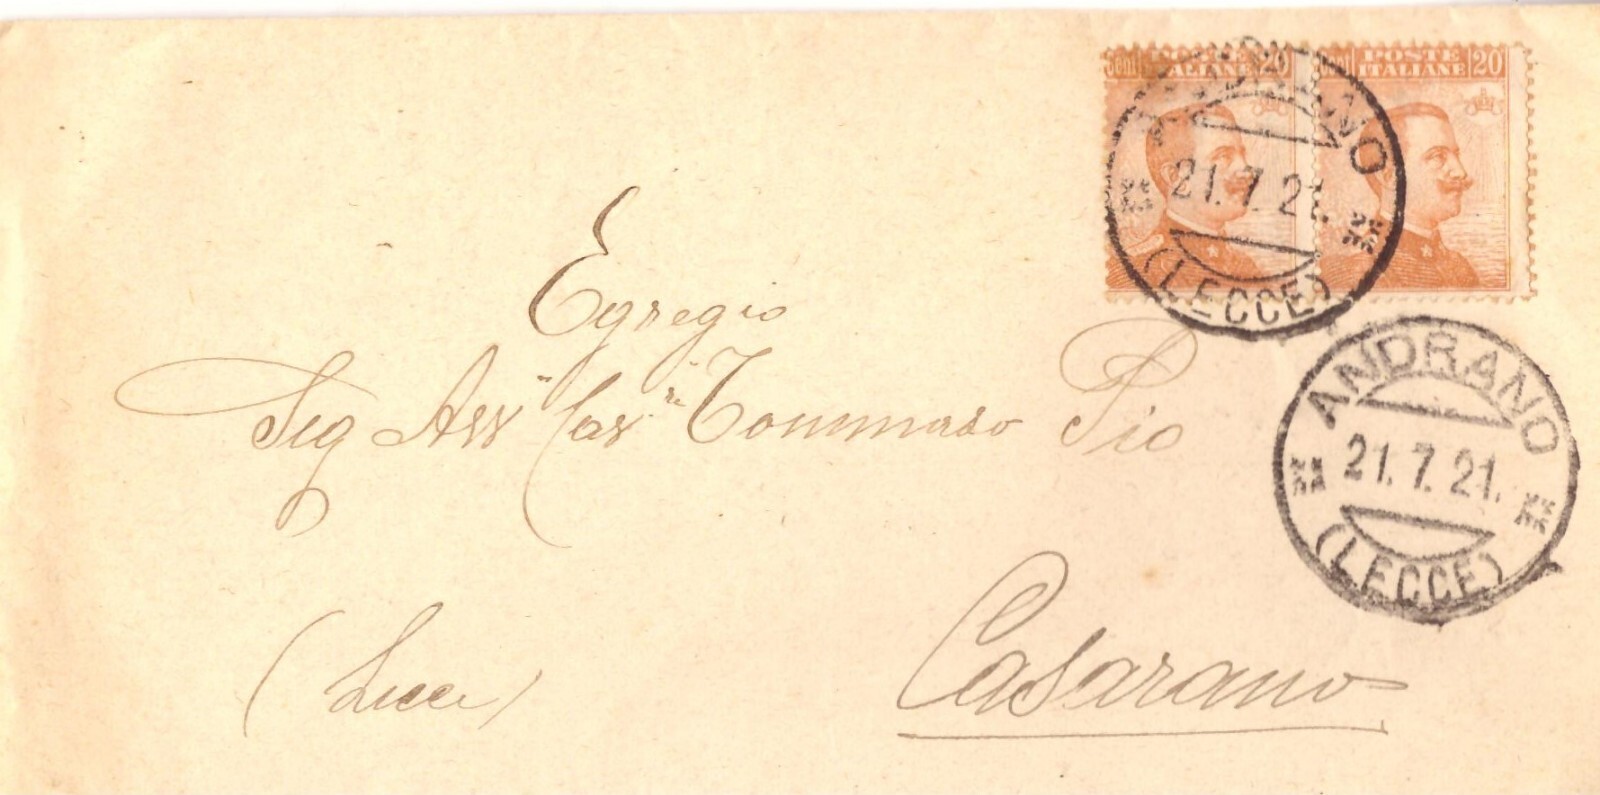 Cent POSTE ITALIANE 20
Cent POSTE ITALIANE 20
ANDRANO
21.7.21.
(LECCE)
ANDRANO
21.7.21.
(LECCE)
Egregio
Sig Avv Cav Tommaso Pio
Casarano
(Lecce)